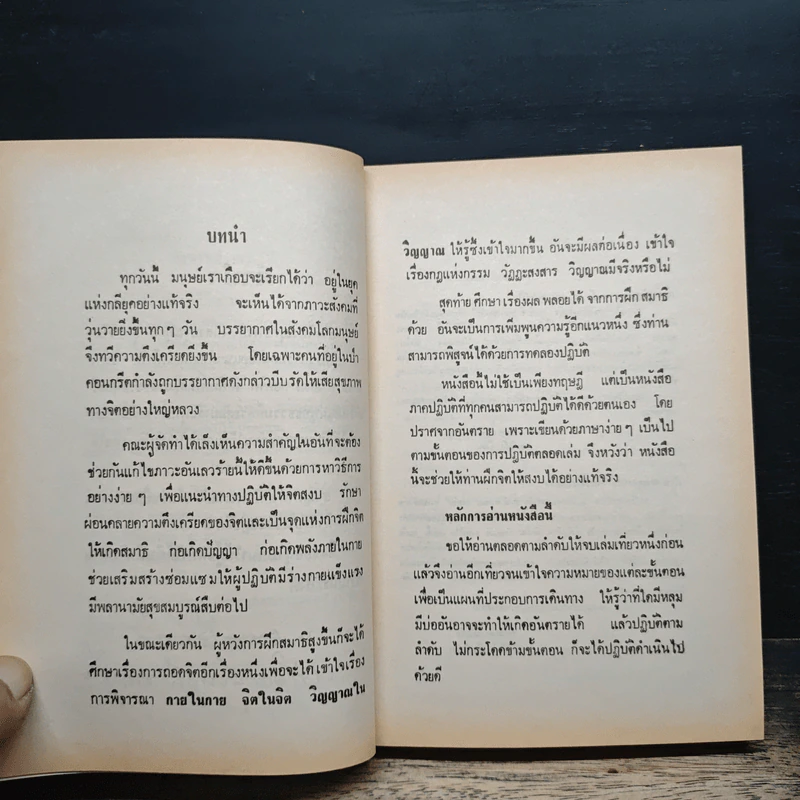 บทนำ
ทุกวันนี้ มนุษย์เราเกือบจะเรียกได้ว่า อยู่ในยุค
แห่งกลียุคอย่างแท้จริง จะเห็นได้จากภาวะสังคมที่
วุ่นวายยิ่งขึ้นทุกๆ วัน บรรยากาศในสังคมโลกมนุษย์
จึงทวีความตึงเครียดยิ่งขึ้น โดยเฉพาะคนที่อยู่ในป่า
คอนกรีตกำลังถูกบรรยากาศดังกล่าวบีบรัดให้เสียสุขภาพ
ทางจิตอย่างใหญ่หลวง
คณะผู้จัดทำได้เล็งเห็นความสำคัญในอันที่จะต้อง
ช่วยกันแก้ไขภาวะอันเลวร้ายนี้ให้ดีขึ้นด้วยการหาวิธีการ
อย่างง่าย ๆ เพื่อแนะนำทางปฏิบัติให้จิตสงบ รักษา
ผ่อนคลายความตึงเครียดของจิตและเป็นจุดแห่งการฝึกจิต
ให้เกิดสมาธิ ก่อเกิดปัญญา ก่อเกิดพลังภายในกาย
ช่วยเสริมสร้างซ่อมแซมให้ผู้ปฏิบัติมีร่างกายแข็งแรง
มีพลานามัยสุขสมบูรณ์สืบต่อไป
ในขณะเดียวกัน ผู้หวังการฝึกสมาธิสูงขึ้นก็จะได้
ศึกษาเรื่องการถอดจิตอีกเรื่องหนึ่งเพื่อจะได้เข้าใจเรื่อง
การพิจารณา กายในกาย จิตในจิต วิญญาณใน
วิญญาณ ให้รู้ซึ้งเข้าใจมากขึ้น อันจะมีผลต่อเนื่อง เข้าใจ
เรื่องกฎแห่งกรรม วัฏฏะสงสาร วิญญาณมีจริงหรือไม่
สุดท้าย ศึกษา เรื่องผล พลอยได้ จากการฝึก สมาธิ
ด้วย อันจะเป็นการเพิ่มพูนความรู้อีกแนวหนึ่ง ซึ่งท่าน
สามารถพิสูจน์ได้ด้วยการทดลองปฏิบัติ
หนังสือนี้ไม่ใช้เป็นเพียงทฤษฎี แต่เป็นหนังสือ
ภาคปฏิบัติที่ทุกคนสามารถปฏิบัติได้ดีด้วยตนเอง โดย
ปราศจากอันตราย เพราะเขียนด้วยภาษาง่ายๆ เป็นไป
ตามขั้นตอนของการปฏิบัติตลอดเล่ม จึงหวังว่า หนังสือ
นี้จะช่วยให้ท่านฝึกจิตให้สงบได้อย่างแท้จริง
หลักการอ่านหนังสือนี้
ขอให้อ่านตลอดตามลำดับให้จบเล่มเที่ยวหนึ่งก่อน
แล้วจึงอ่านอีกเที่ยวจนเข้าใจความหมายของแต่ละขั้นตอน
เพื่อเป็นแผนที่ประกอบการเดินทาง ให้รู้ว่าที่ใดมีหลุม
มีบ่ออันอาจจะทำให้เกิดอันตรายได้ แล้วปฏิบัติตาม
ลำดับ ไม่กระโดดข้ามขั้นตอน ก็จะได้ปฏิบัติดำเนินไป
ด้วยดี